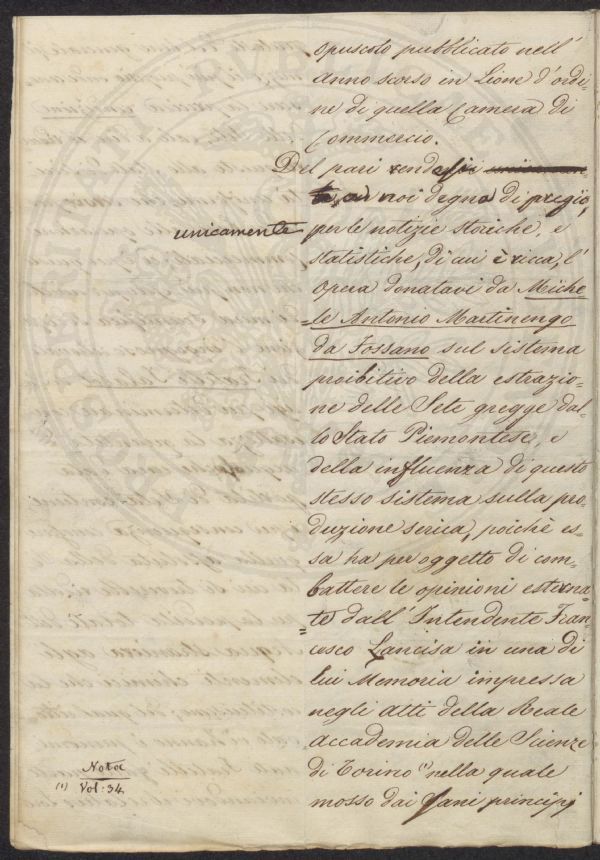 opuscolo pubblicato nell'
anno scorso in Lione d'ordi=
ne di quella Camera di
Commercio.
Del pari rendesi unicamen=
te, a noi degna di pregio,
unicamente
per le notizie storiche, e
statistiche, di cui è ricca, l'
opera donatavi da Miche=
=le Antonio Martinengo
da Fossano sul sistema
proibitivo della estrazio=
ne delle Sete gregge dal=
lo Stato Piemontese, e
della influenza di questo
stesso sistema sulla pro=
duzione serica, poichè es=
sa ha per oggetto di com=
battere le opinioni esterna=
te dall'Intendente Fran=
=cesco Lancisa in una di
lui Memoria impressa
negli atti della Reale
Accademia delle Scienze
di Torino (1) nella quale
mosso dai sani principj
Nota
(1) Vol: 34.